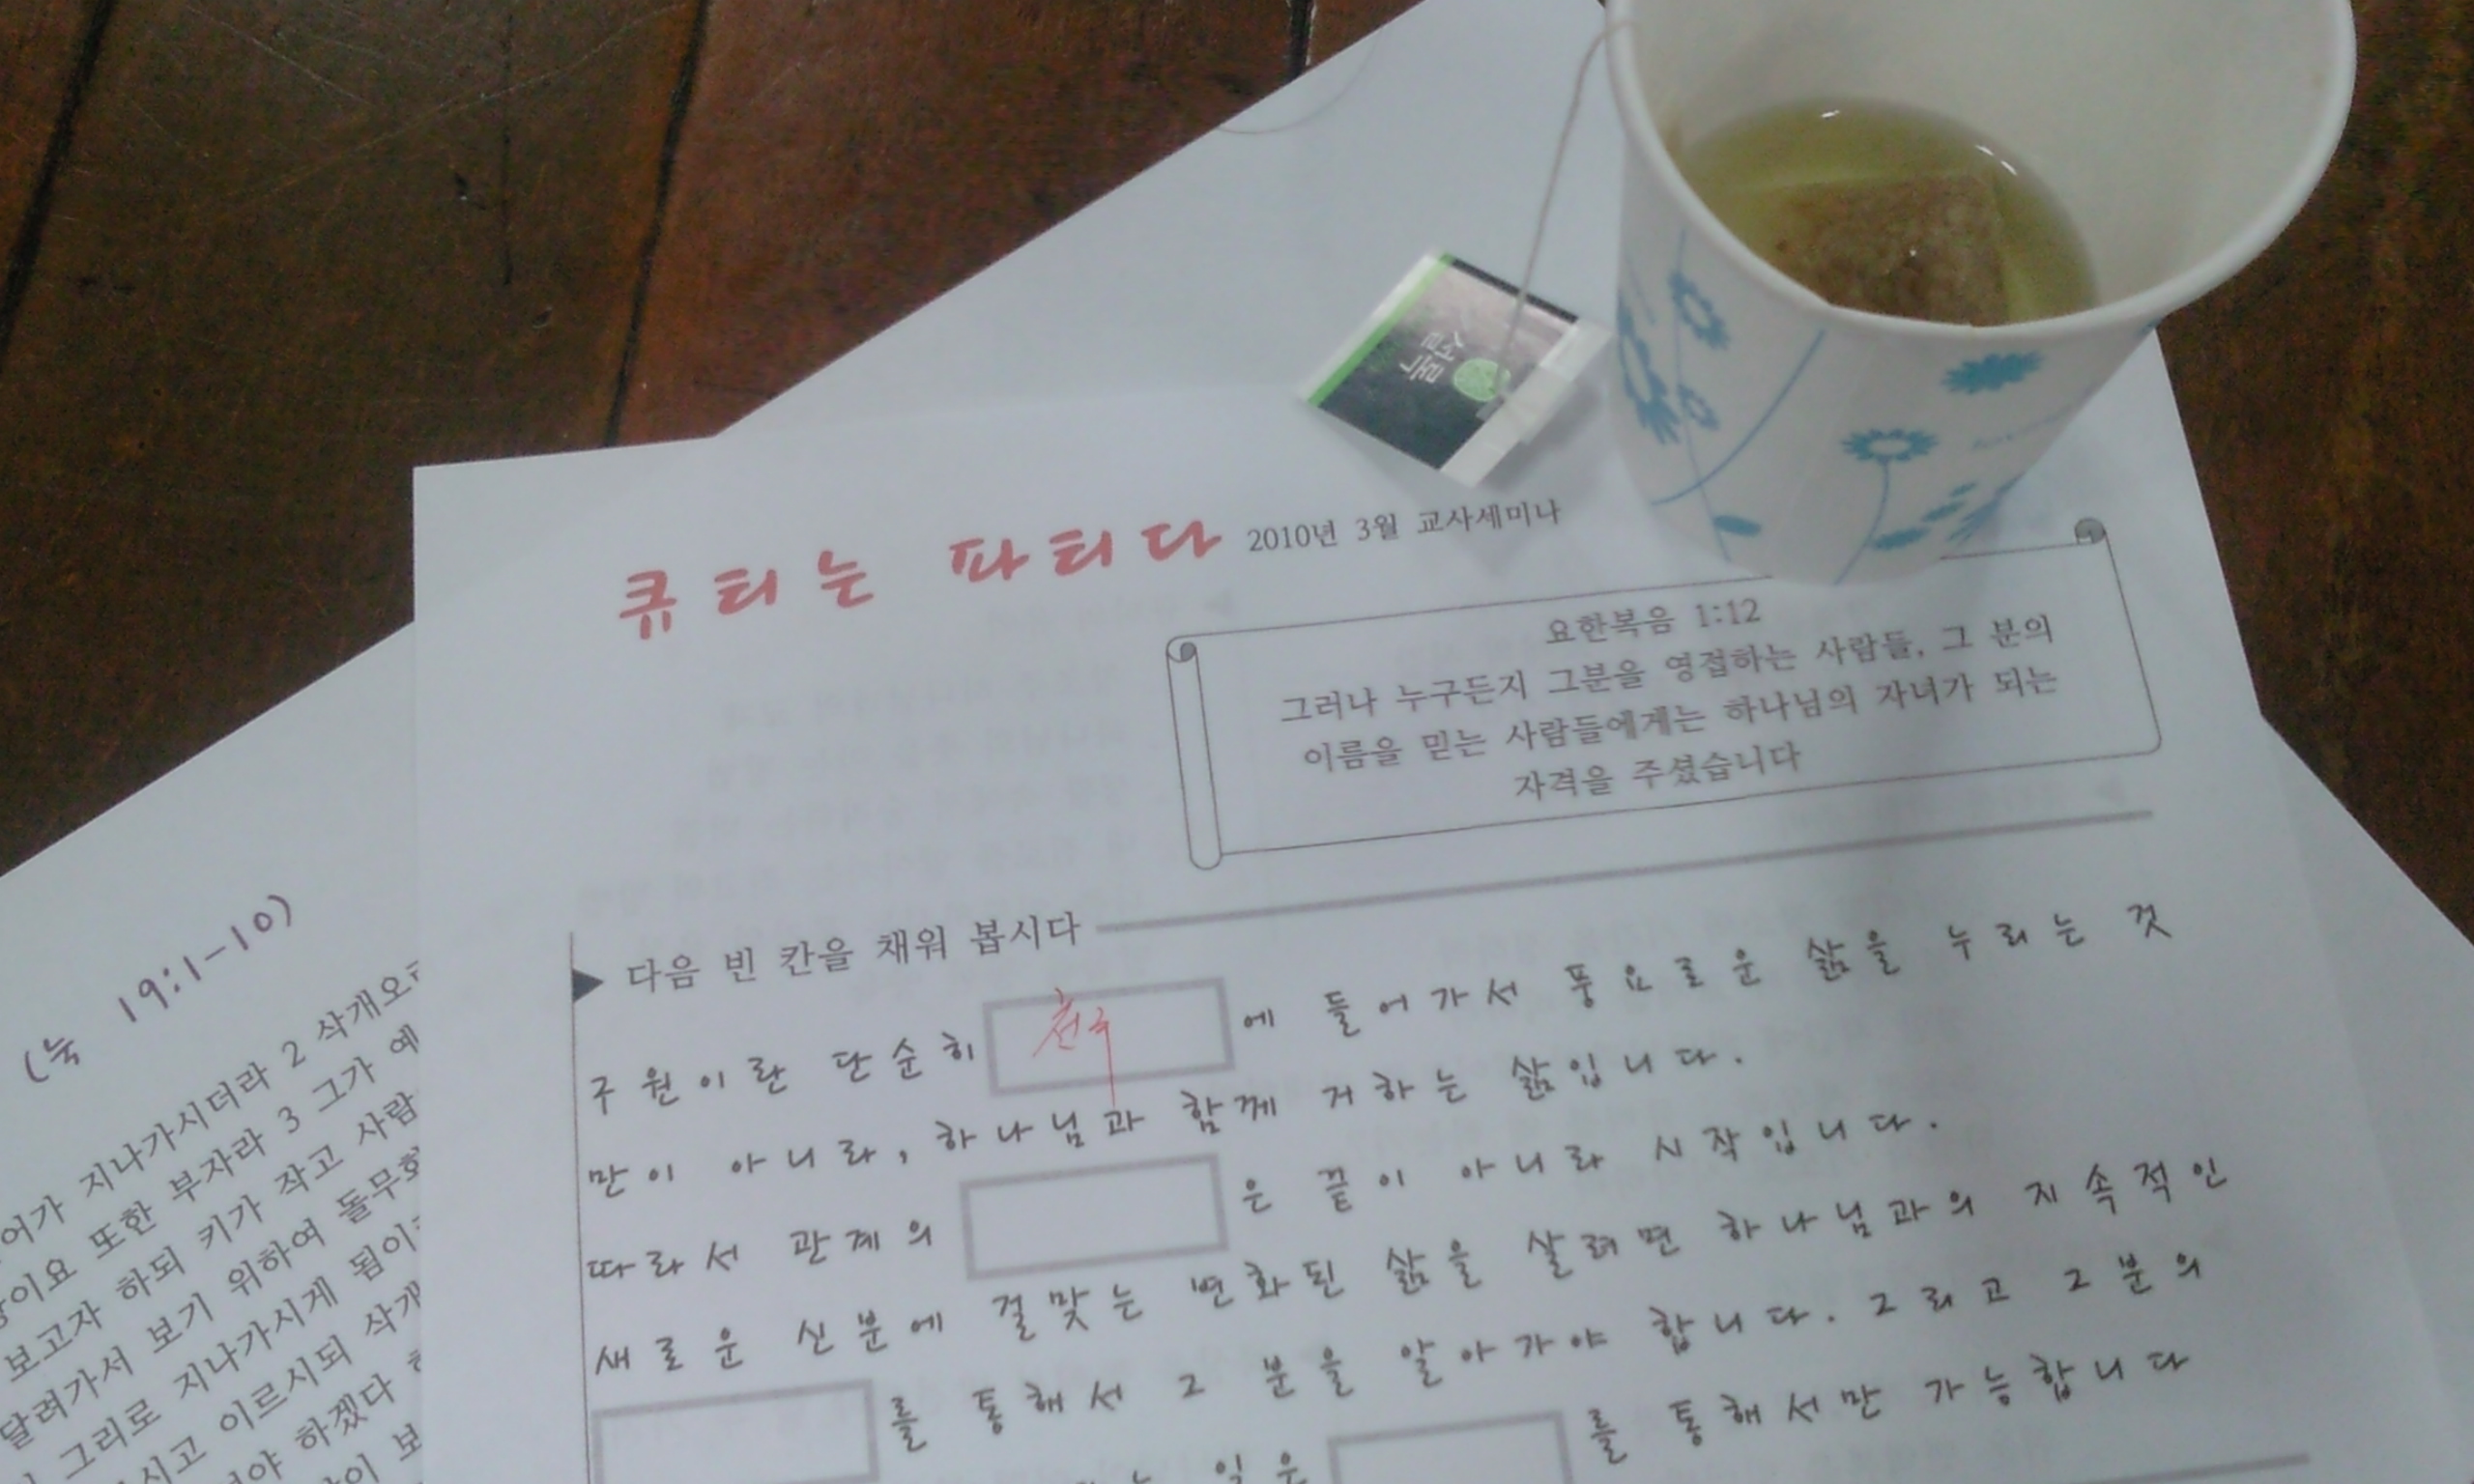 설록
큐티는 파티다 2010년 3월 교사세미나
요한복음 1:12
그러나 누구든지 그분을 영접하는 사람들, 그 분의
이름을 믿는 사람들에게는 하나님의 자녀가 되는
자격을 주셨습니다
다음 빈 칸을 채워 봅시다
구원이란 단순히 천국에 들어가서 풍요로운 삶을 누리는 것
만이 아니라, 하나님과 함께 거하는 삶입니다.
따라서 관계의 은 끝이 아니라 시작입니다.
새로운 신분에 걸맞는 변화된 삶을 살려면 하나님과의 지속적인
를 통해서 그 분을 알아가야 합니다. 그리고 그분의
일은 를 통해서만 가능합니다
(눅 19:1-10)
지나가시더라 2 삭개오
또한 부자라 3 그가 예
보고자 하되 키가 작고 사람
달려가서 보기 위하여 돌무화
그리로 지나가시게 됨이
이르시되 삭개
하겠다
보